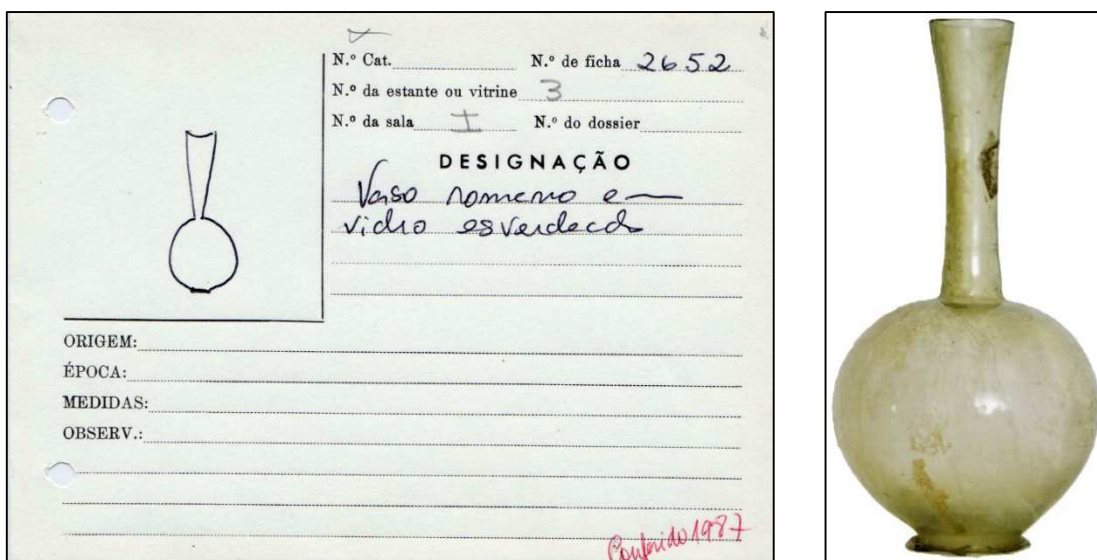 N.º Cat. N.º de ficha 2652
N.º da estante ou vitrine 3
N.º da sala I N.º do dossier
DESIGNAÇÃO
Vaso romano em
vidro esverdeado
ORIGEM:
ÉPOCA:
MEDIDAS:
OBSERV.:
Conferido 1987